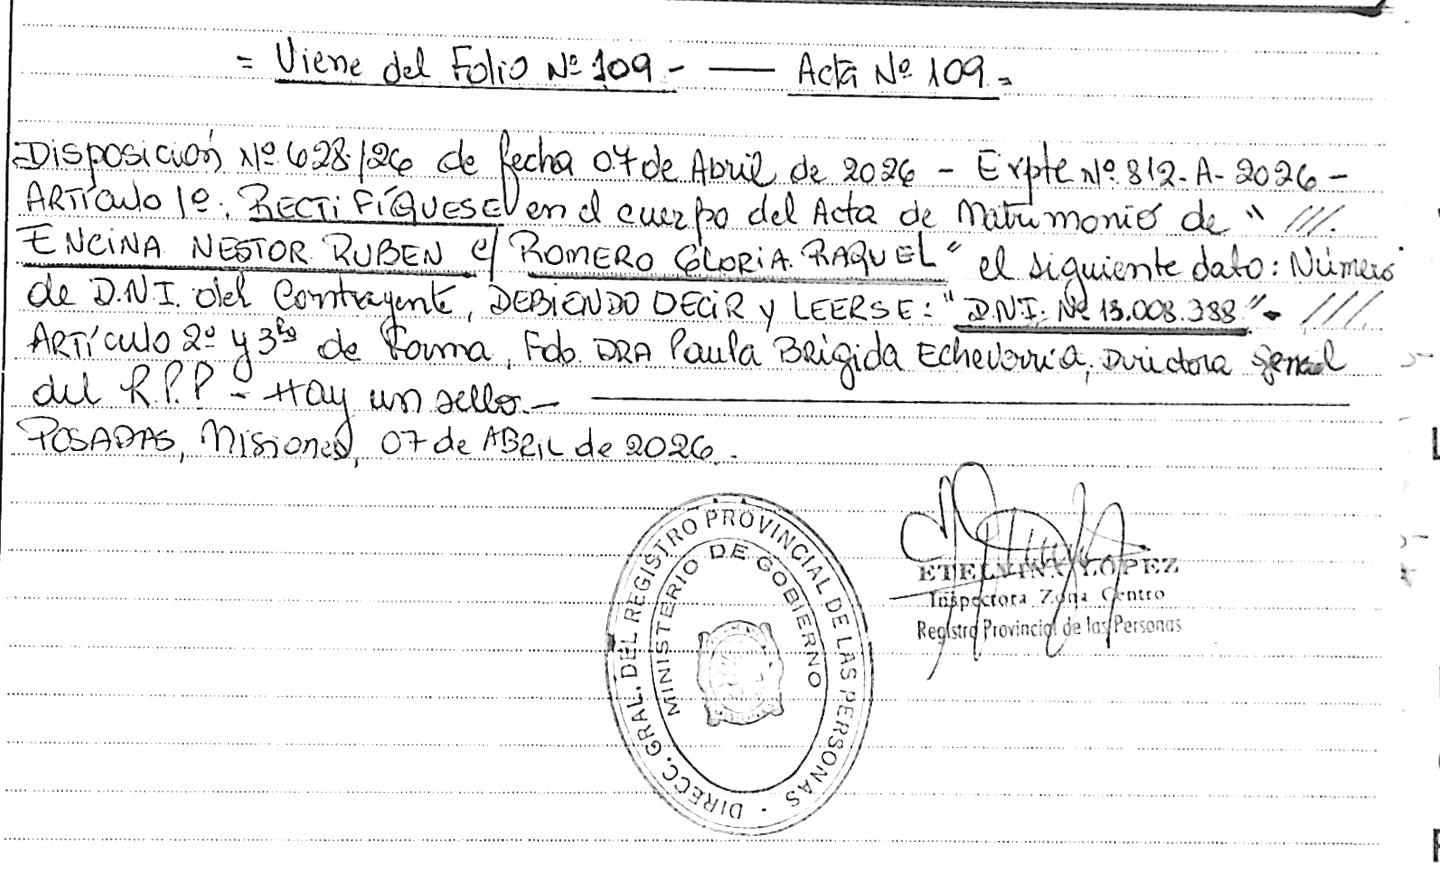 = Viene del Folio Nº 109 - — Acta Nº 109 =
Disposición Nº 628/26 de fecha 07 de Abril de 2026 - Expte Nº 812-A-2026 -
ARTículo 1º: RECTIFÍQUESE en el cuerpo del Acta de Matrimonio de " ///.
ENCINA NESTOR RUBEN c/ ROMERO GLORIA RAQUEL" el siguiente dato: Número
de D.N.I. del Contrayente, DEBIENDO DECIR y LEERSE: "D.N.I. Nº 13.008.388"- ///.
ARTículo 2º y 3º de forma, Fdo. DRA Paula Brígida Echeverría, Directora General
del R.P.P - Hay un sello.-
POSADAS, Misiones, 07 de ABRIL de 2026.-
DIRECC. GRAL. DEL REGISTRO PROVINCIAL DE LAS PERSONAS
MINISTERIO DE GOBIERNO
ETELVINA LOPEZ
Inspectora Zona Centro
Registro Provincial de las Personas